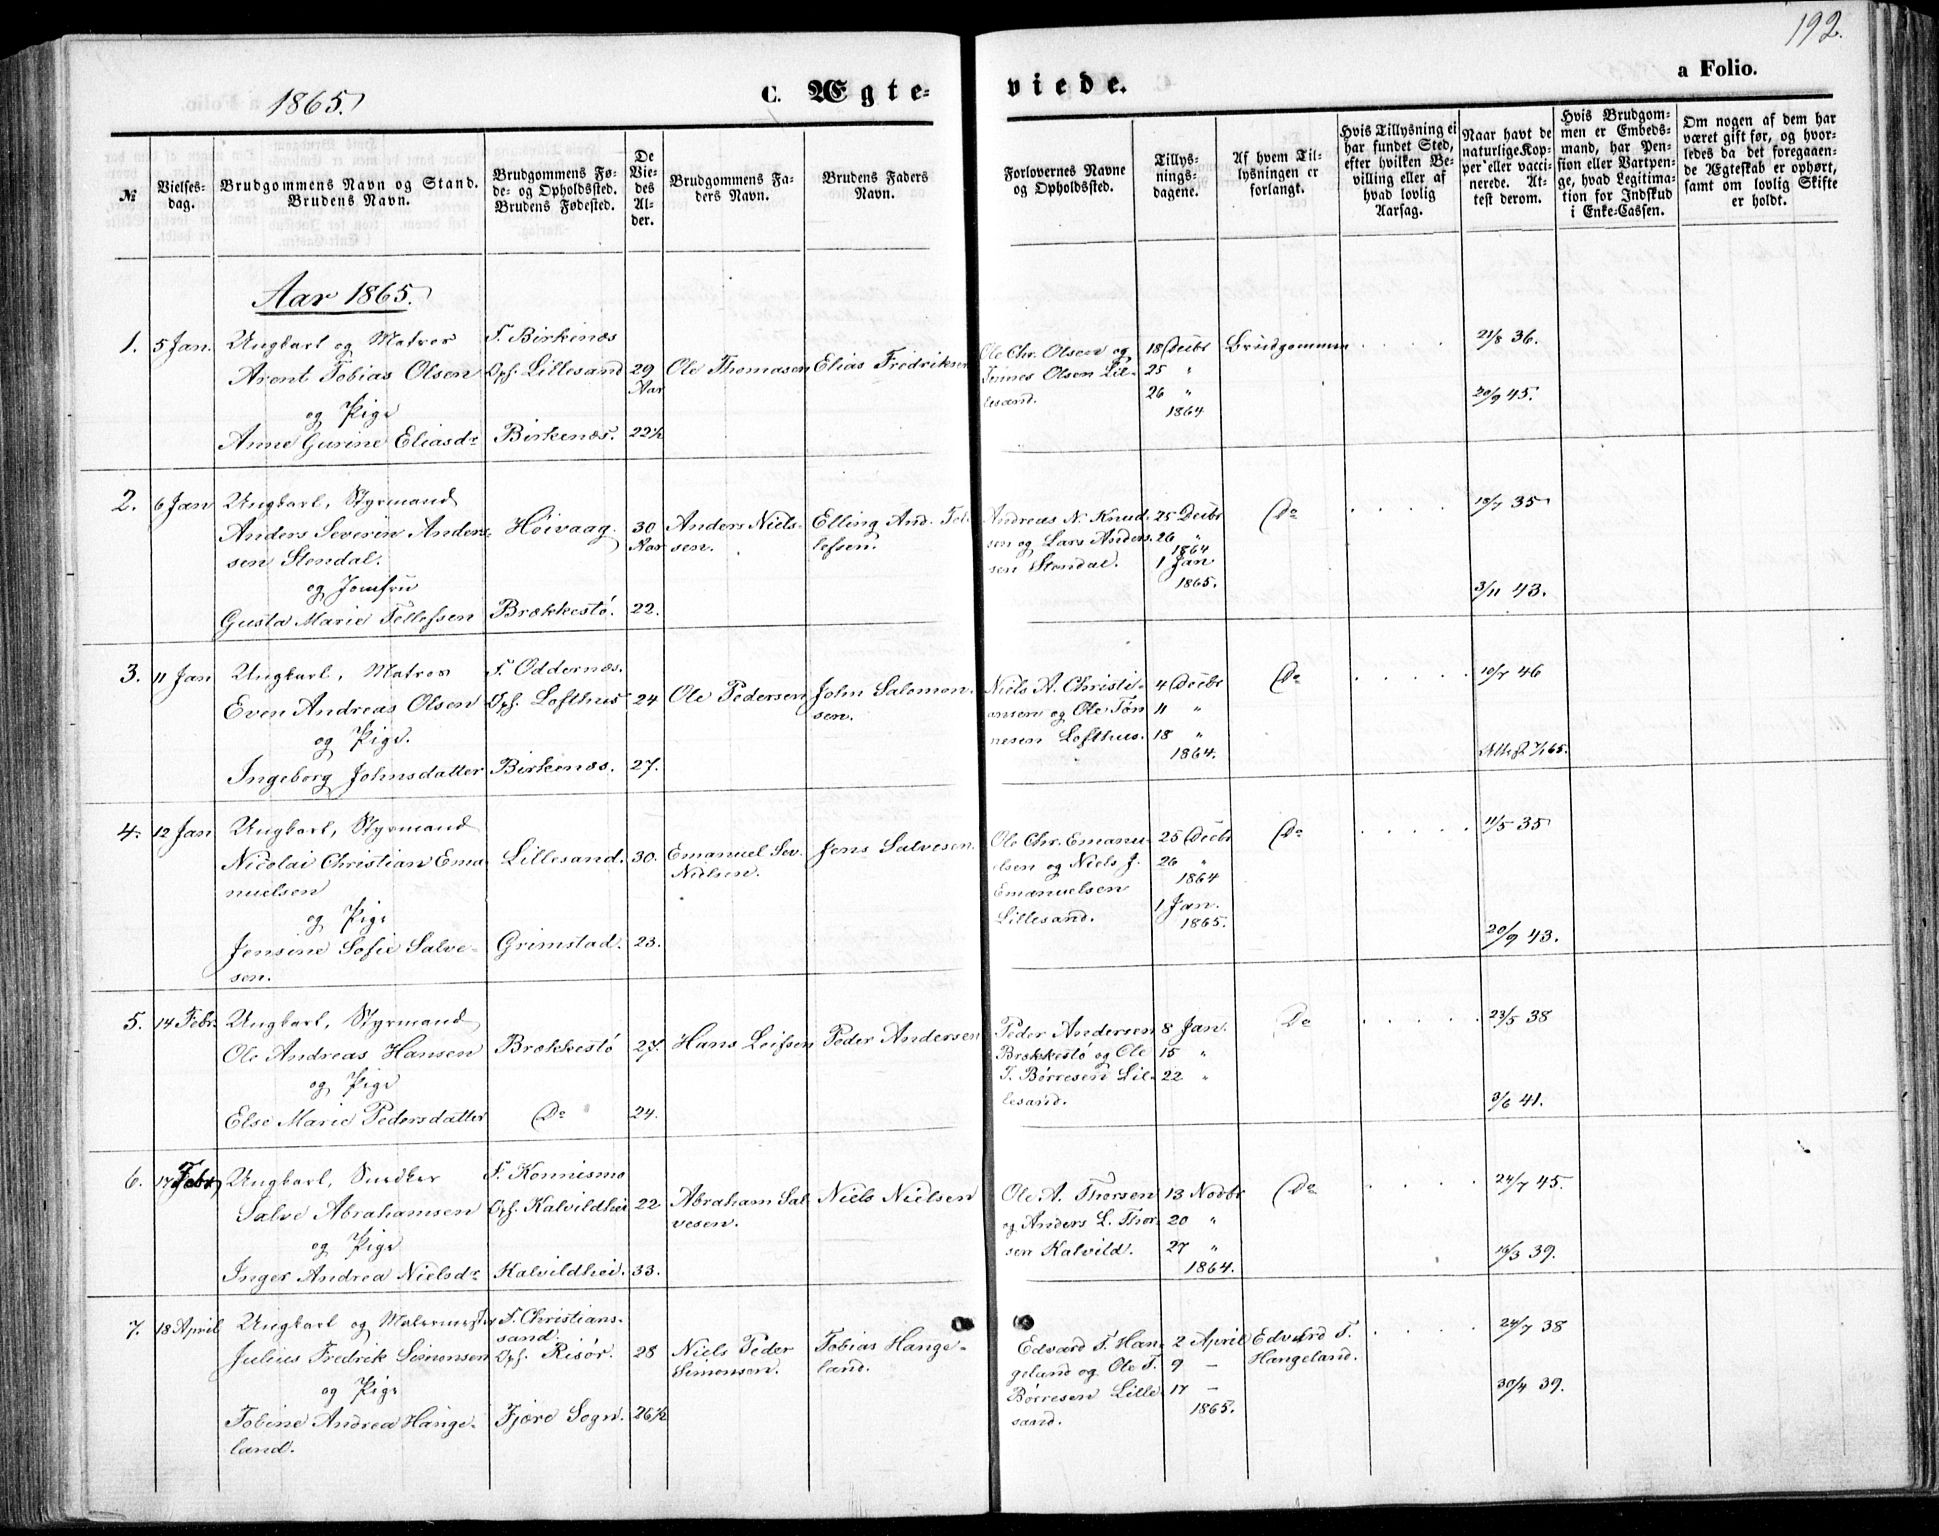 192.
1865.
C. Ægte-
viede.
a Folio.
№
Vielses-
dag.
Brudgommens Navn og Stand.
Brudens Navn.
Brudgommens Fø-
de- og Opholdssted.
Brudens Fødested.
De
Vie-
des
Al-
der.
Brudgommens Fa-
ders Navn.
Brudens Faders
Navn.
Forlovernes Navne
og Opholdssted.
Tillys-
nings-
dagene.
Af hvem Til-
lysningen er
forlangt.
Hvis Tillysning ei
har fundet Sted,
efter hvilken Be-
villing eller af
hvad lovlig
Aarsag.
Naar havt de
naturlige Kop-
per eller vacci-
nerede. At-
test derom.
Hvis Brudgom-
men er Embeds-
mand, har Pen-
sion eller Vartpen-
ge, hvad Legitima-
tion for Indskud
i Enke-Cassen.
Om nogen af dem har
været gift før, og hvor-
ledes da det foregaaen-
de Ægteskab er ophørt,
samt om lovlig Skifte
er holdt.
Aar 1865.
1. 5 Jan. Ungkarl og Matros
Arent Tobias Olsen
og Pige
Anne Gurine Eliasdr
F. Birkenæs
Oph. Lillesand
Birkenæs.
29
Aar
22½
Ole Thomasen
Elias Fredriksen
Ole Chr. Olsen og
Tønnes Olsen Lil-
lesand.
18 Decbr
25 "
26 "
1864
Brudgommen
21/8 36.
20/9 45.
2. 6 Jan Ungkarl, Styrmand
Anders Severin Anders-
sen Stendal.
og Jomfru
Gusta Marie Tellefsen
Høivaag.
Brækkestø.
30
Aar
22.
Anders Niels-
sen.
Elling And. Tel-
lefsen.
Andreas N. Knud-
sen og Lars Anders-
sen Stendal.
25 Decbr
26 "
1864
1 Jan
1865.
Do
18/7 35
3/11 43.
3. 11 Jan Ungkarl, Matros
Even Andreas Olsen
og Pige.
Ingeborg Johnsdatter
F. Oddernæs.
Oph. Lofthus
Birkenæs.
24
27.
Ole Pedersen
John Salomon-
sen.
Niels A. Christi-
ansen og Ole Tøn
nesen Lofthus.
4 Decbr
11 "
18 "
1864.
Do
10/7 46
Attest 7/1 65.
4. 12 Jan Ungkarl, Styrmand
Nicolai Christian Ema-
nuelsen
og Pige
Jensine Sofie Salve-
sen.
Lillesand.
Grimstad.
30.
23.
Emanuel Sev.
Nielsen.
Jens Salvesen.
Ole Chr. Emanu-
elsen og Niels J.
Emanuelsen
Lillesand.
25 Decbr
26 "
1864
1 Jan.
1865.
Do
11/5 35
20/9 43.
5. 14 Febr. Ungkarl, Styrmand
Ole Andreas Hansen
og Pige
Else Marie Pedersdatter
Brækkestø
Do
27.
24.
Hans Leifsen
Peder Andersen
Peder Andersen
Brækkestø og Ole
T. Børresen Lil-
lesand.
8 Jan.
15 "
22 "
Do
23/5 38
3/6 41.
6. 17 Febr Ungkarl, Snedker
Salve Abrahamsen
og Pige
Inger Andrea Nielsdr
F. Konnismo
Oph. Kalvildhei
Kalvildhei.
22
33.
Abraham Sal
vesen.
Niels Nielsen
Ole A. Thorsen
og Anders L. Thor-
sen Kalvild.
13 Novbr
20 "
27 "
1864.
Do
24/7 45.
13/3 39.
7. 18 April Ungkarl og Malermester
Julius Fredrik Simonsen
og Pige
Tobine Andrea Hange-
land.
F. Christians-
sand.
Oph. Risør.
Fjære Sogn.
28
26½
Niels Peder
Simonsen.
Tobias Hange-
land.
Edvard T. Han-
geland og Ole T.
Børresen Lille
sand.
2 April
9 -
17 -
1865.
Edvard T.
Hangeland.
24/7 38
30/4 39.